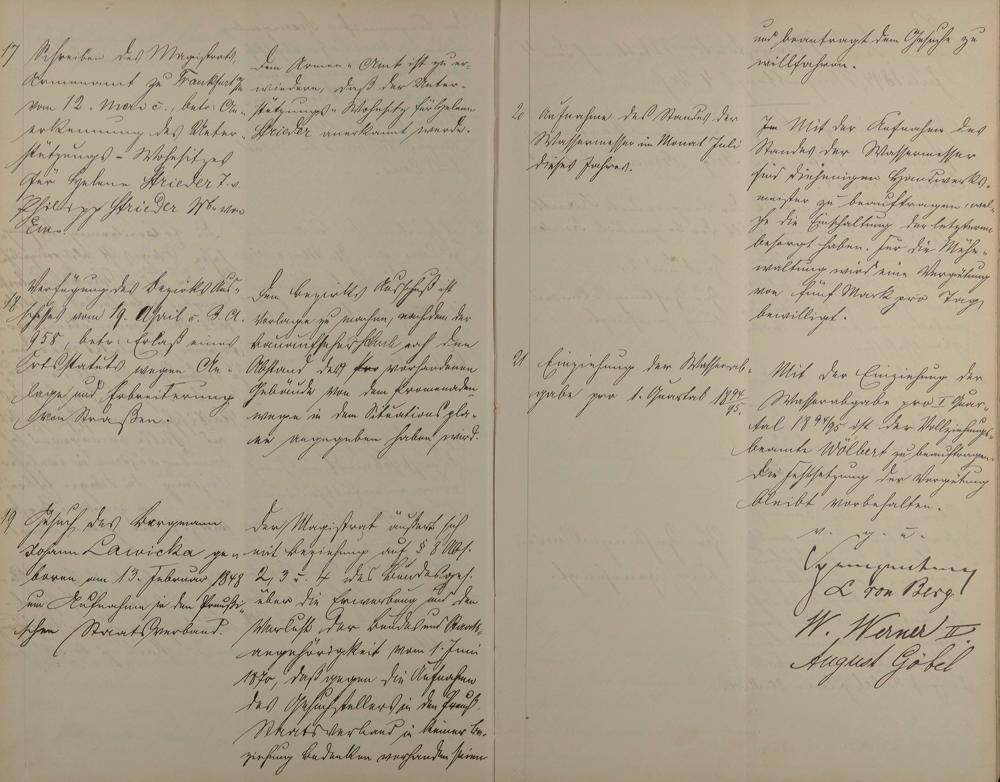 17
Schreiben des Magistrats,
Armenamt zu Frankfurt
vom 12. März c., betr: An-
erkennung des Unter-
stützungs-Wohnsitzes
für Helene Strieder T. v.
Philipp Strieder von
Dem Armen-Amt ist zu er-
wiedern, daß der Unter-
stützungs-Wohnsitz für Helene
Strieder anerkannt werde.
18
Verfügung des Bezirks Aus-
schusses vom 19. April c. B. A.
958, betr: Erlaß eines
Ortsstatuts wegen An-
lage und Erbreiterung
von Straßen.
Dem Bezirks Ausschuß ist
Vorlage zu machen, nachdem der
noch den
Abstand der vorhandenen
Gebäude von dem Promenaden-
wege in dem Situationspla-
ne angegeben haben wird.
19
Gesuch des Bergmann
Johann Lawicka ge-
boren am 13. Februar 1848
um Aufnahme in den Preußi-
schen Staatsverband.
Der Magistrat äußert sich
mit Beziehung auf § 8 Abs.
2, 3 u. 4 des Bundesges.
über die Erwerbung und den
Verlust der Bundes und Staats-
angehörigkeit vom 1. Juni
1870, daß gegen die Aufnahme
des Gesuchstellers in den Preuß.
Staatsverband in keiner Be-
ziehung Bedenken vorhanden seien
und beantragt dem Gesuche zu
willfahren.
20
Aufnahme des Standes der
Wassermesser im Monat Juli
dieses Jahres.
Mit der Aufnahme des
Standes der Wassermesser
sind diejenigen Handwerks-
meister zu beauftragen, wel-
che die Einschaltung der letzteren
besorgt haben. Für die Mühe-
waltung wird eine Vergütung
von fünf Mark pro Tag
bewilligt.
21
Einziehung der Wasserab-
gabe pro 1. Quartal 1894/95.
Mit der Einziehung der
Wasserabgabe pro I Quar-
tal 1894/95 ist der Vollziehungs-
beamte Wölbert zu beauftragen.
Die Festsetzung der Vergütung
bleibt vorbehalten.
v. g. u.
L von Berg
W. Werner II.
August Göbel